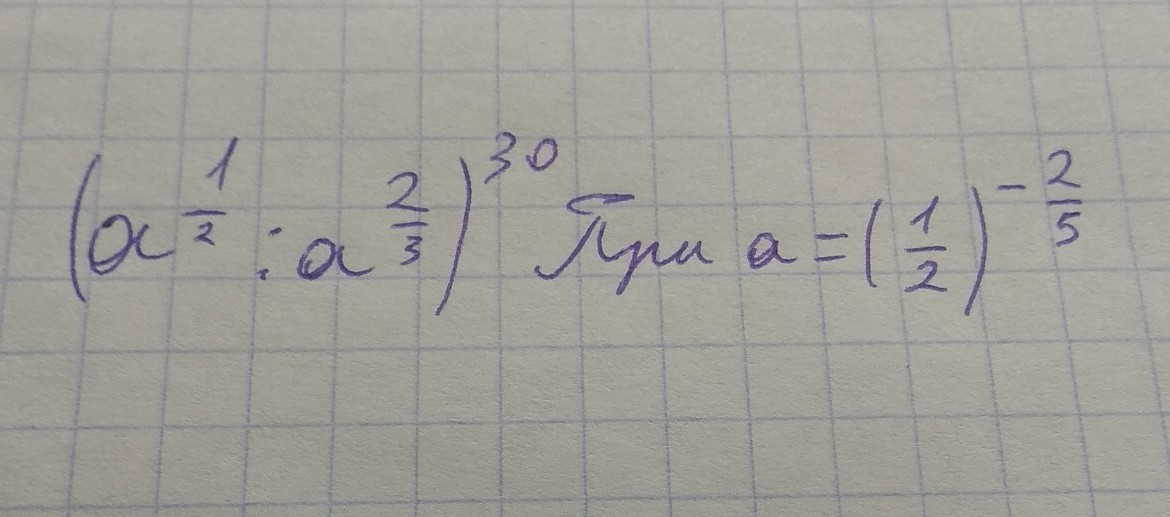 (a^{1/2} : a^{2/3})^{30} При a = (1/2)^{-2/5}